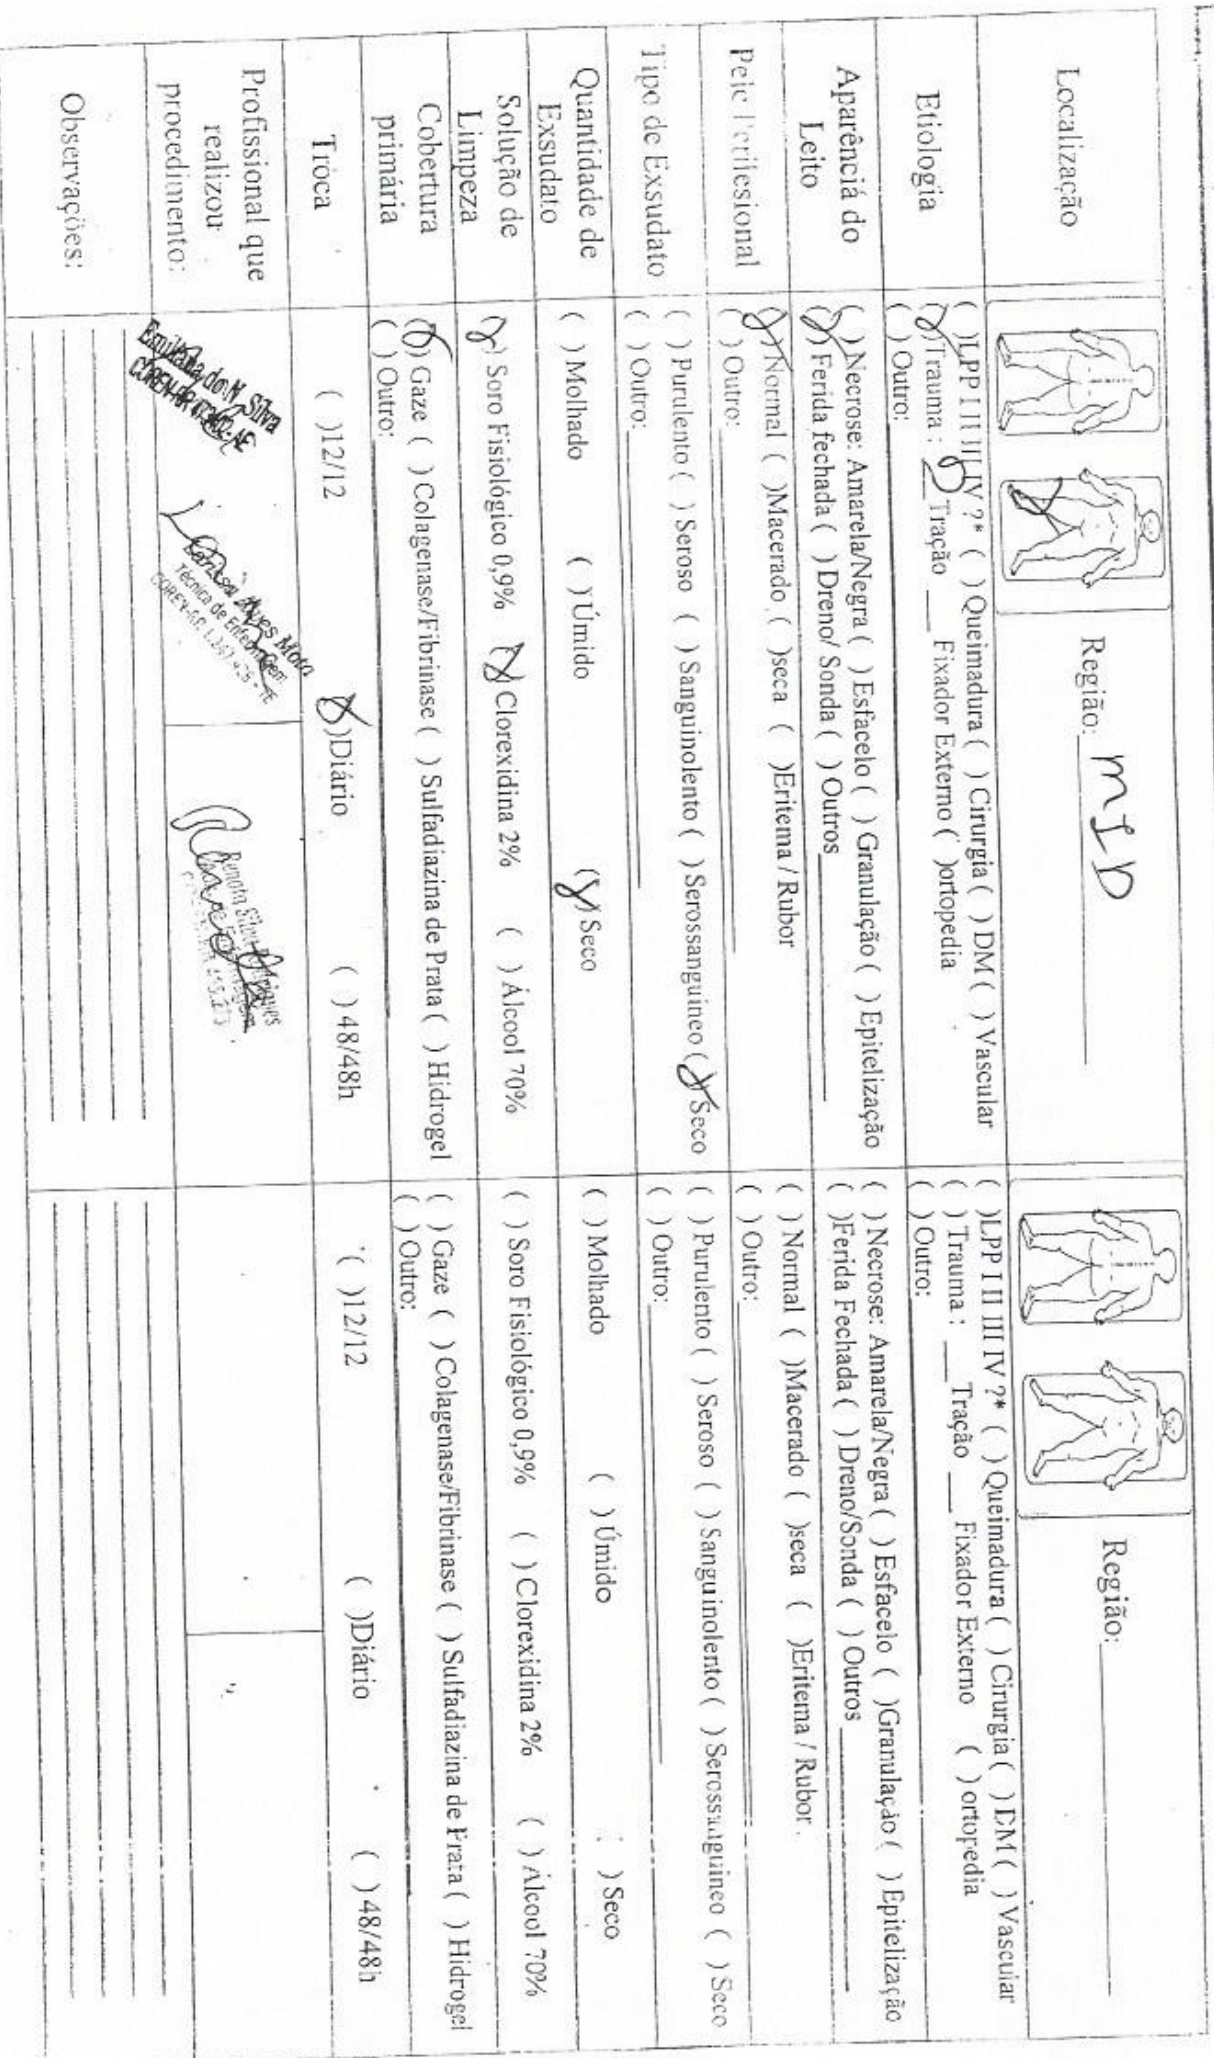 Localização
Região: MID
Região:
Etiologia
( )LPP I II III IV ?* ( ) Queimadura ( ) Cirurgia ( ) DM ( ) Vascular
(X)Trauma : X Tração ___ Fixador Externo ( )ortopedia
( ) Outro:
( )LPP I II III IV ?* ( ) Queimadura ( ) Cirurgia ( ) DM ( ) Vascular
( ) Trauma : ___ Tração ___ Fixador Externo ( ) ortopedia
( ) Outro:
Aparência do
Leito
( ) Necrose: Amarela/Negra ( ) Esfacelo ( ) Granulação ( ) Epitelização
(X) Ferida fechada ( ) Dreno/ Sonda ( ) Outros
( ) Necrose: Amarela/Negra ( ) Esfacelo ( )Granulação ( ) Epitelização
( )Ferida Fechada ( ) Dreno/Sonda ( ) Outros
Pele Perilesional
(X)Normal ( )Macerado ( )seca ( )Eritema / Rubor
( ) Outro:
( ) Normal ( )Macerado ( )seca ( )Eritema / Rubor
( ) Outro:
Tipo de Exsudato
( ) Purulento ( ) Seroso ( ) Sanguinolento ( ) Serossanguineo (X) Seco
( ) Outro:
( ) Purulento ( ) Seroso ( ) Sanguinolento ( ) Serossanguineo ( ) Seco
( ) Outro:
Quantidade de
Exsudato
( ) Molhado ( ) Úmido (X) Seco
( ) Molhado ( ) Úmido ( ) Seco
Solução de
Limpeza
(X) Soro Fisiológico 0,9% (X) Clorexidina 2% ( ) Álcool 70%
( ) Soro Fisiológico 0,9% ( ) Clorexidina 2% ( ) Álcool 70%
Cobertura
primária
(X) Gaze ( ) Colagenase/Fibrinase ( ) Sulfadiazina de Prata ( ) Hidrogel
( ) Outro:
( ) Gaze ( ) Colagenase/Fibrinase ( ) Sulfadiazina de Prata ( ) Hidrogel
( ) Outro:
Troca
( )12/12 (X)Diário ( ) 48/48h
( )12/12 ( )Diário ( ) 48/48h
Profissional que
realizou
procedimento:
do N. Silva
Alves Mota
Técnica de Enfermagem
Renata Silva
Observações: